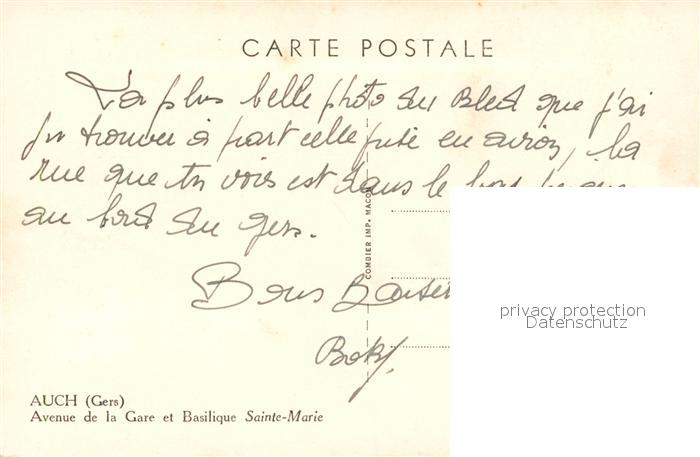 CARTE POSTALE
La plus belle photo du Bled que j'ai
pu trouver à part celle prise en avion, la
rue que tu vois est dans le bas
au bord du gers.
COMBIER IMP. MACON
Bons Baisers
privacy protection
Datenschutz
AUCH (Gers)
Avenue de la Gare et Basilique Sainte-Marie